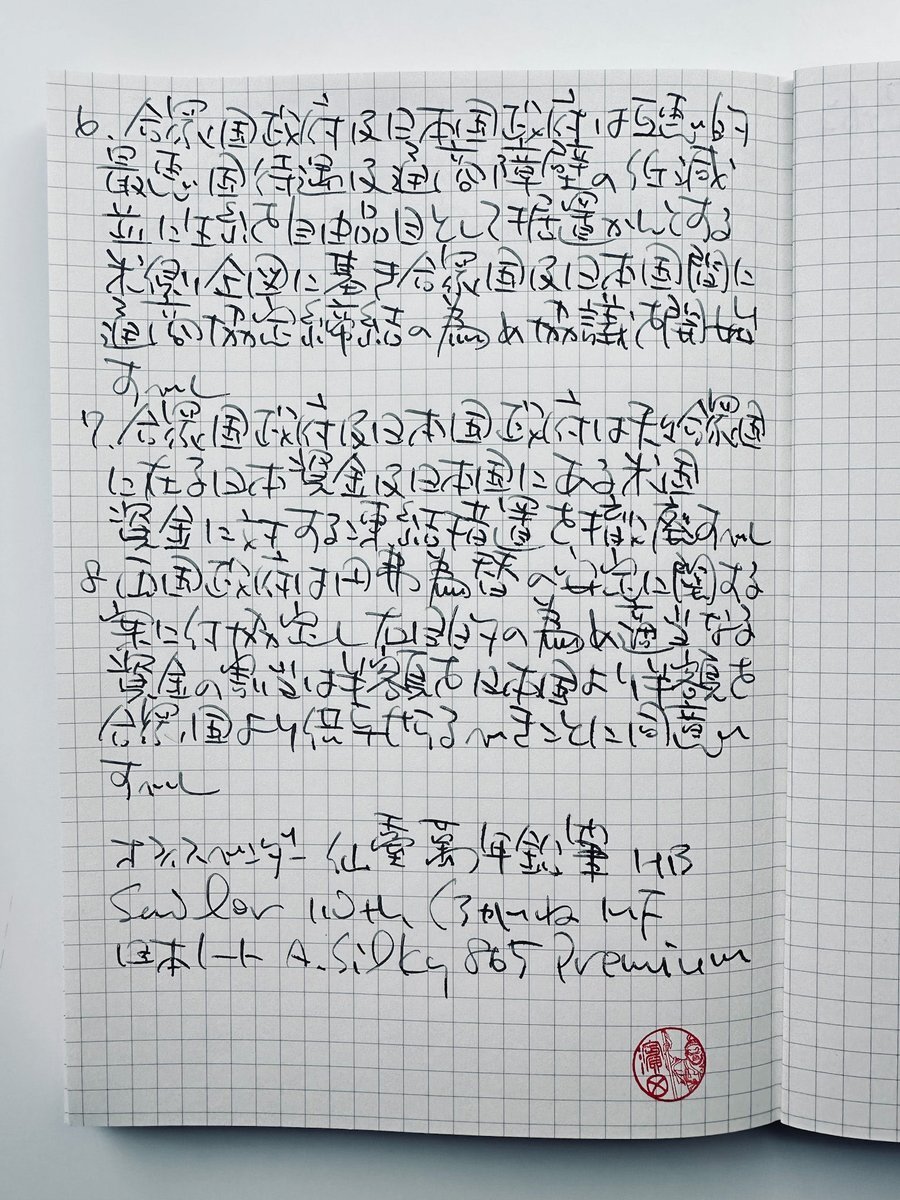 6. 合衆国政府及日本国政府は互恵的
最恵国待遇及通商障壁の低減
並に生糸を自由品目として据置かんとする
米側企図に基き合衆国及日本国間に
通商協定締結の為め協議を開始
すへし
7. 合衆国政府及日本国政府は夫々合衆国
に在る日本資金及日本国にある米国
資金に対する凍結措置を撤廃すへし
8 両国政府は円弗為替の安定に関する
案に付協定し右目的の為め適当なる
資金の割当は半額を日本国より半額を
合衆国より供与せらるへきことに同意
すへし
仙臺 萬年鉛筆 HB
Sailor 110th MF
日本ノート A.Silky 865 Premium